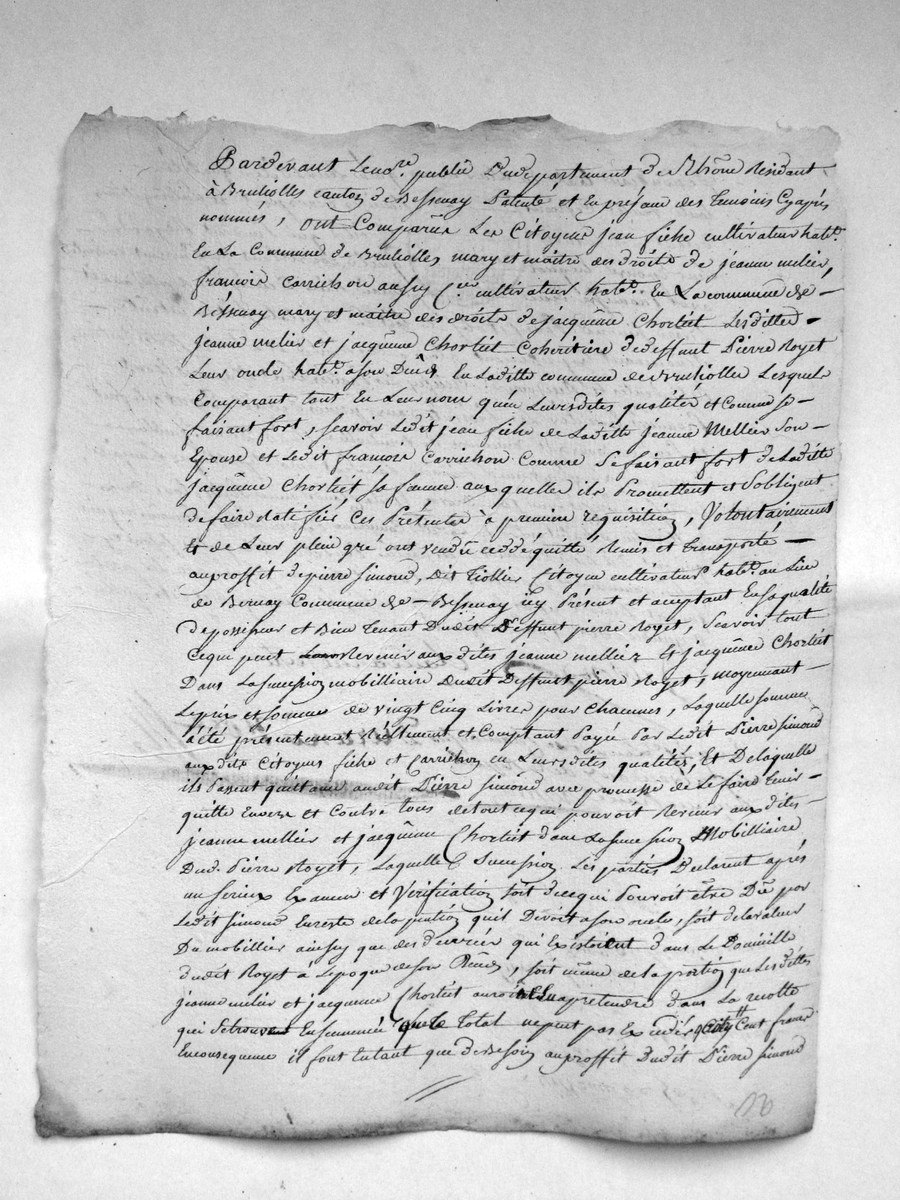 Pardevant Le no.re public Du departement de Rhône Residant
à Bruliolles canton de Bessenay Patenté et En présance des temoins Cy après
nommés, ont Comparus Les Citoyens jean fiche cultivateur hab.t
En La Commune de Bruliolles mary et maitre des droits de jeanne melier,
francois Carrichon aussy C.en cultivateur hab.t En La commune de –
Béssenay mary et maitre des droits de jacqueme Chortiet Les dittes –
jeanne melier et jacqueme Chortiet Cohéritière de deffunt Pierre Royet
Leur oncle hab.t a son Décès En Laditte commune de Brulliolle Lesquels
Comparant tant En Leur nom qu'en Leursdites qualités et Comme se –
faisant fort, Scavoir Ledit jean fiche de Laditte Jeanne Mellier Son –
Epouse et Ledit francois Carrichon Comme Se faisant fort de Laditte
jacqueme Chortiet sa femme auxquelles ils Promettent et Sobligent
de faire Ratifiér Ces Présentes à premiere requisition, Volontairement
Et de Leur plein gré ont vendu ceddé quitté Remis et transporté –
au proffit de pierre Simond, dit Citoyen cultivateur hab.t au Lieu
de Bernay Commune de – Bessenay icy Présent et aceptant En sa qualité
de possesseur et Bien tenant Dudit Deffunt pierre Royet, Scavoir tout
Ce qui peut Revenir aux dites jeanne mellier Et jacqueme Chortiet
Dans La succession mobilliaire dudit Deffunt pierre Royet, moyennant –
Le prix et somme de vingt Cinq Livres pour Chacunes, Laquelle somme
a été présentement Réellement et Comptant Payée Par Ledit Pierre Simond
auxdits Citoyens fiche et Carrichon en Leursdites qualités, Et De laquelle
ils Passent quittance audit Pierre Simond avec promesse de Le faire tenir –
quitte Envers et Contre tous de tout ce qui pouvoit Revenir aux dites –
jeanne mellier et jacqueme Chortiet dans La succession Mobilliaire
Dud. Pierre Royet, Laquelle Succession Les parties Déclarent après
un serieux Examen et Vérification soit de ce qui Pouvoit être Dû par
Ledit Simond En reste de la pention qu'il Devoit a son oncle, soit de la valeur
Du mobillier ainsy que des denrées qui Existoient dans Le Domicille
dudit Royet à Lepoque de son Décès, soit même de la portion que Lesdittes
jeanne melier et jacqueme Chortiet auroient a pretendre dans La recolte
qui Se trouve Ensemencée que Le total ne peut pas Excéder Cent francs
En consequence il font En tant que de Besoin au proffit Dudit Pierre Simond